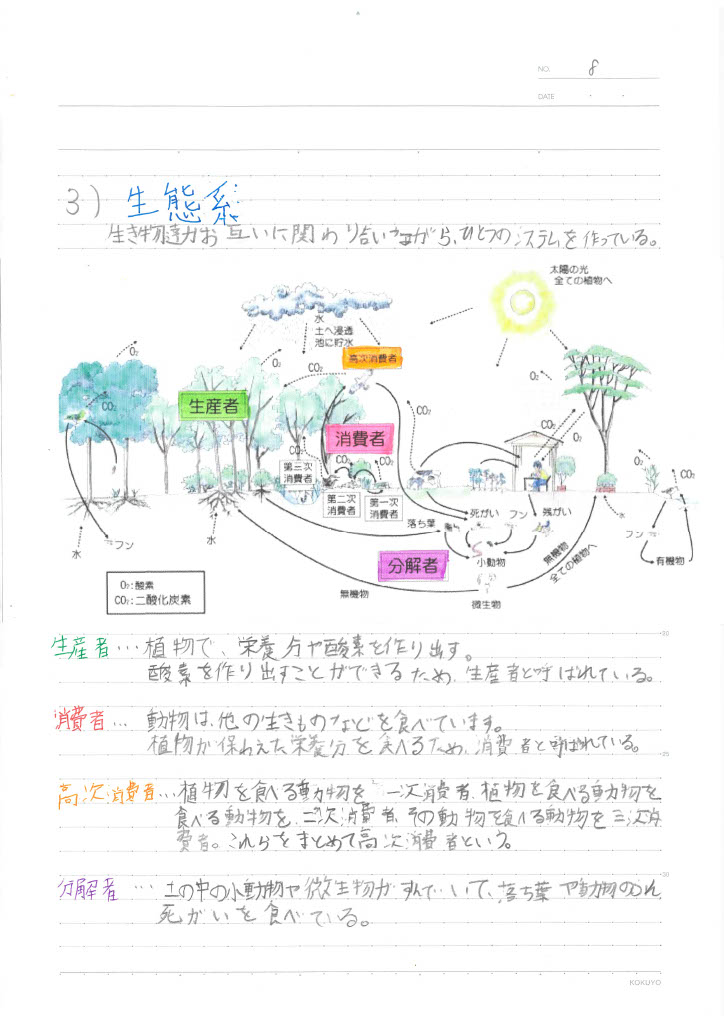 NO. 8
DATE
3) 生態系
生き物達がお互いに関わり合いながら、ひとつのシステムを作っている。
太陽の光
全ての植物へ
水
土へ浸透
池に貯水
高次消費者
O₂
CO₂
O₂
CO₂
O₂
CO₂
生産者
消費者
CO₂
CO₂
CO₂
CO₂
O₂
CO₂
O₂
O₂
CO₂
第三次
消費者
第二次
消費者
第一次
消費者
落ち葉
死がい
フン
残がい
水
フン
水
分解者
小動物
微生物
無機物
無機物
全ての植物へ
水
フン
有機物
O₂:酸素
CO₂:二酸化炭素
生産者…植物で、栄養分や酸素を作り出す。
酸素を作り出すことができるため、生産者と呼ばれている。
消費者…動物は、他の生きものなどを食べています。
植物が保わえた栄養分を食べるため、消費者と呼ばれている。
高次消費者…植物を食べる動物を一次消費者、植物を食べる動物を
食べる動物を、二次消費者、その動物を食べる動物を三次消
費者。これらをまとめて高次消費者という。
分解者…土の中の小動物や微生物がすんでいて、落ち葉や動物のふん
死がいを食べている。
KOKUYO